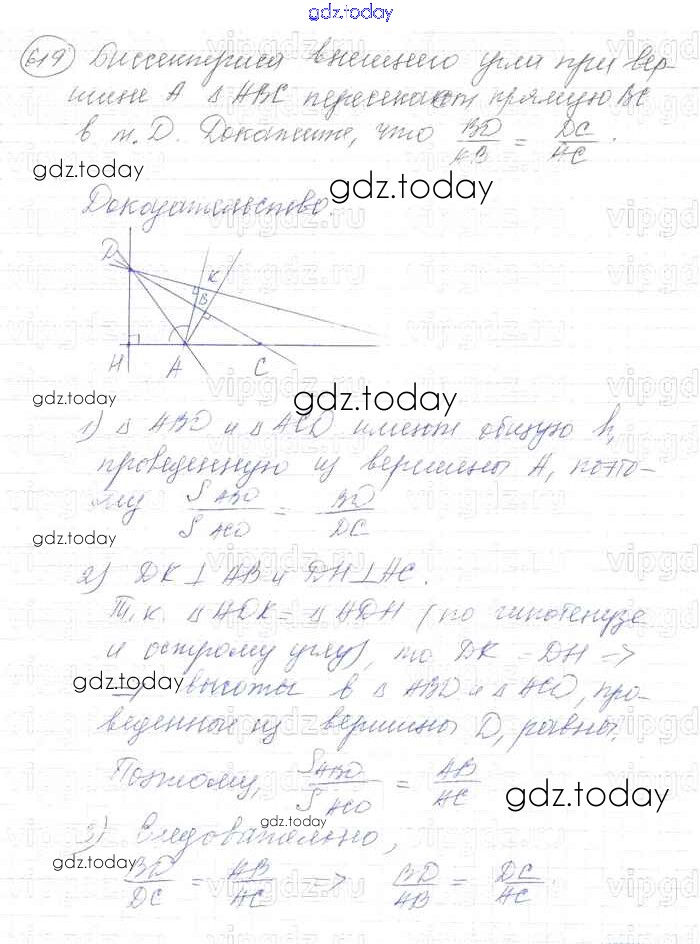 gdz.today
619 Биссектриса внешнего угла при вер-
шине A △ ABC пересекает прямую BC
в т. D. Докажите, что BD/AB = DC/AC.
gdz.today
gdz.today
Доказательство.
D K B
H A C
gdz.today
gdz.today
1) △ ABD и △ ACD имеют общую h,
проведенную из вершины A, поэто-
му S ABD / S ACD = BD / DC
gdz.today
2) DK ⊥ AB и DH ⊥ AC.
Т.к. △ ADK = △ ADH (по гипотенузе
и острому углу), то DK = DH =>
=> высоты в △ ABD и △ ACD, про-
gdz.today
веденные из вершины D, равны.
Поэтому, S ABD / S ACD = AB / AC
gdz.today
3) Следовательно,
gdz.today
BD/DC = AB/AC => BD/AB = DC/AC